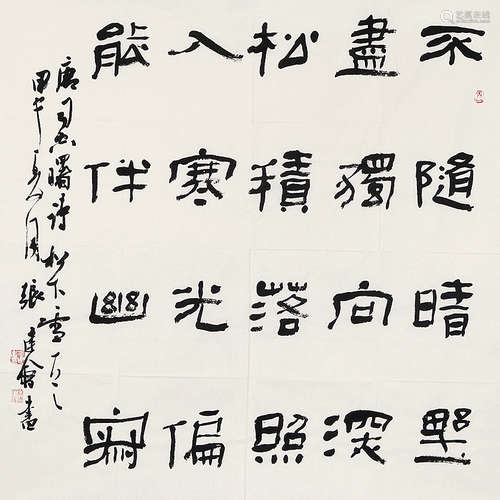 不随晴野
盡獨向深
松積落照
入寒光偏
能伴幽寂
唐司空曙詩松下雪一首
甲午夏月張建會書